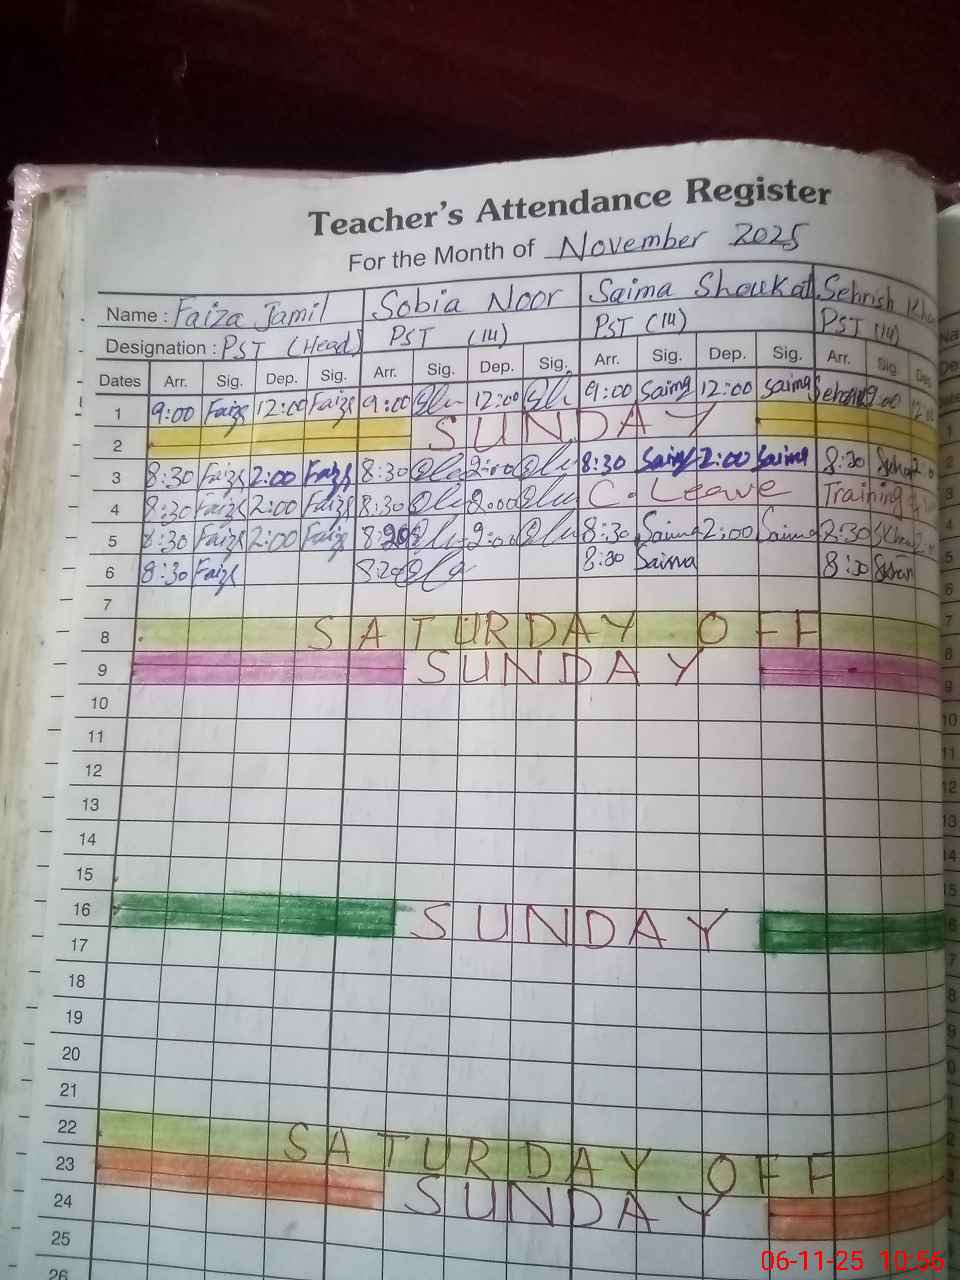 Teacher's Attendance Register
For the Month of November 2025
Name : Faiza Jamil Sobia Noor Saima Shoukat Sehrish
Designation : PST (Head) PST (14) PST (14) PST (14)
Dates Arr. Sig. Dep. Sig. Arr. Sig. Dep. Sig. Arr. Sig. Dep. Sig. Arr. Sig.
1 9:00 Faiza 12:00 Faiza 9:00 12:00 9:00 Saima 12:00 Saima 9:00
2 SUNDAY
3 8:30 Faiza 2:00 Faiza 8:30 2:00 8:30 Saima 2:00 Saima 8:30
4 8:30 Faiza 2:00 Faiza 8:30 2:00 C. Leave Training
5 8:30 Faiza 2:00 Faiza 2:00 8:30 Saima 2:00 Saima 8:30
6 8:30 Faiza 8:30 Saima 8:30
7
8 SATURDAY OFF
9 SUNDAY
10
11
12
13
14
15
16 SUNDAY
17
18
19
20
21
22 SATURDAY OFF
23 SUNDAY
24
25
26
06-11-25 10:56